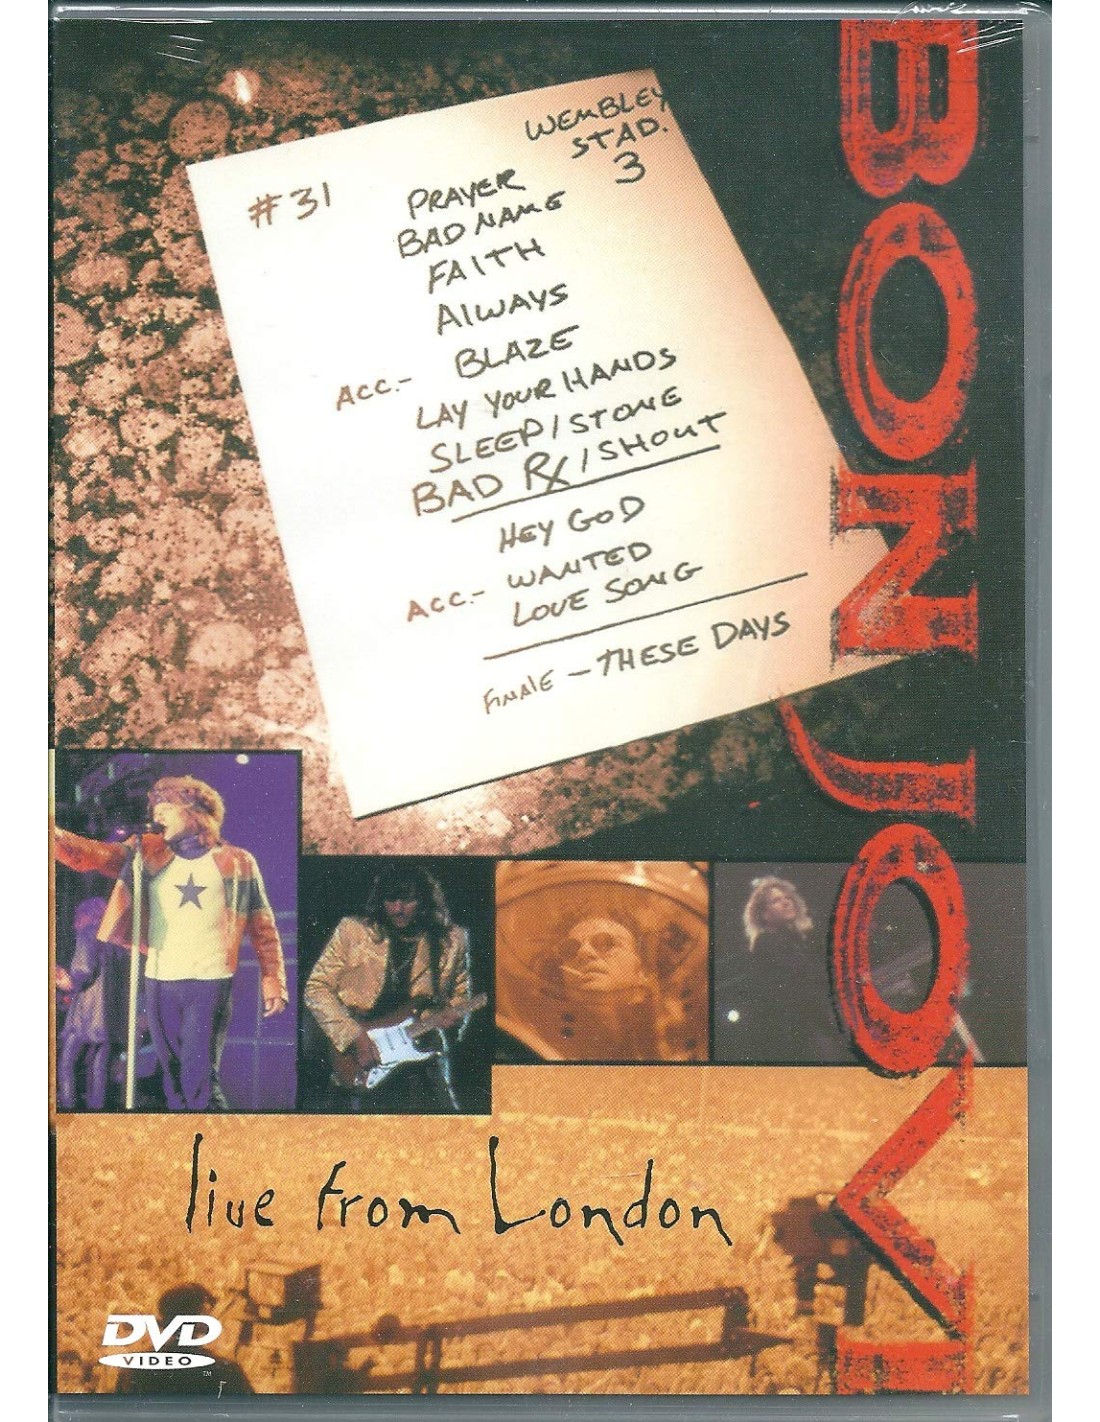 WEMBLEY
STAD.
3
#31
PRAYER
BAD NAME
FAITH
ALWAYS
BLAZE
ACC.-
LAY YOUR HANDS
SLEEP/STONE
BAD Rx/SHOUT
HEY GOD
ACC.- WANTED
LOVE SONG
FINALE - THESE DAYS
BON JOVI
live from London
DVD
VIDEO
TM